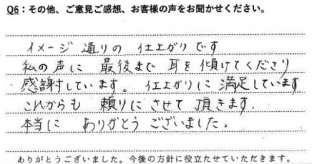 Q6：その他、ご意見ご感想、お客様の声をお聞かせください。
イメージ通りの 仕上がりです
私の声に 最後まで 耳を傾けてくださり
感謝しています。 仕上がりに 満足しています
これからも 頼りにさせて 頂きます。
本当に ありがとうございました。
ありがとうございました。今後の方針に役立たせていただきます。